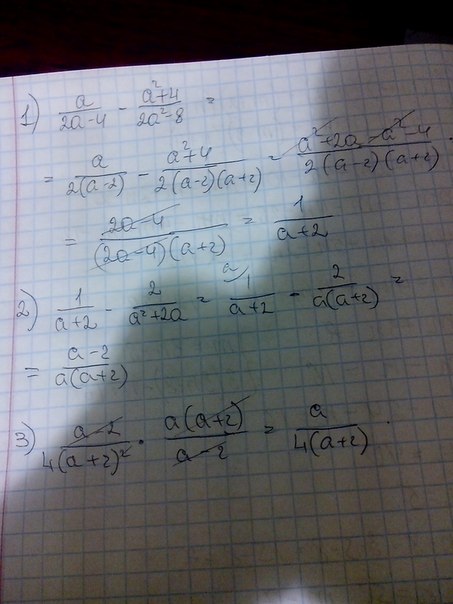 1) a/(2a-4) - (a²+4)/(2a²-8) =
= a/(2(a-2)) - (a²+4)/(2(a-2)(a+2)) = (a²+2a-a²-4)/(2(a-2)(a+2)) .
= (2a-4)/((2a-4)(a+2)) = 1/(a+2)
2) 1/(a+2) - 2/(a²+2a) = a 1/(a+2) - 2/(a(a+2)) =
= (a-2)/(a(a+2))
3) (a-2)/(4(a+2)²) · (a(a+2))/(a-2) = a/(4(a+2)) .